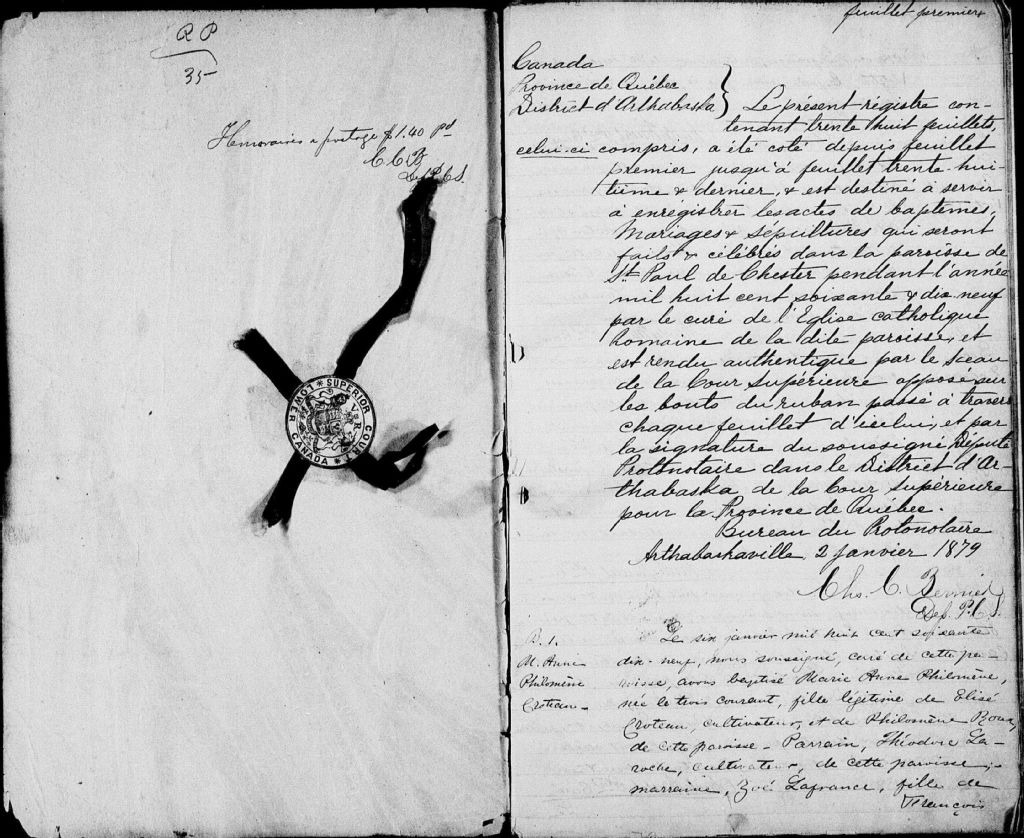 R P
35-
Honoraires & portage $1.40 Pd
C C B
Dep P.C.S.
SUPERIOR COURT
LOWER CANADA
V R
feuillet premier
Canada
Province de Québec
District d'Arthabaska
Le présent régistre con-
tenant trente huit feuillets,
celui-ci compris, a été coté depuis feuillet
premier jusqu'à feuillet trente-hui-
tième & dernier, & est destiné à servir
à enrégistrer les actes de baptêmes,
Mariages & Sépultures qui seront
faits & célébrés dans la paroisse de
St. Paul de Chester pendant l'année
mil huit cent soixante & dix neuf
par le curé de l'Eglise catholique
Romaine de la dite paroisse, et
est rendu authentique par le Sceau
de la Cour Supérieure apposé sur
les bouts du ruban passé à travers
chaque feuillet d'icelui, et par
la signature du soussigné Député
Protonotaire dans le District d'Ar-
thabaska de la Cour Supérieure
pour la Province de Québec.
Bureau du Protonotaire
Arthabaskaville 2 janvier 1879
Chs. C. Bernier
Dep. P.C.S.
B. 1.
M. Anne
Philomène
Croteau-
Le six janvier mil huit cent soixante
dix-neuf, nous soussigné, curé de cette pa-
roisse, avons baptisé Marie Anne Philomène,
née le trois courant, fille légitime de Elisé
Croteau, cultivateur, et de Philomène Roux,
de cette paroisse - Parrain, Théodore La-
roche, cultivateur, de cette paroisse;
marraine, Zoé Lafrance, fille de
François